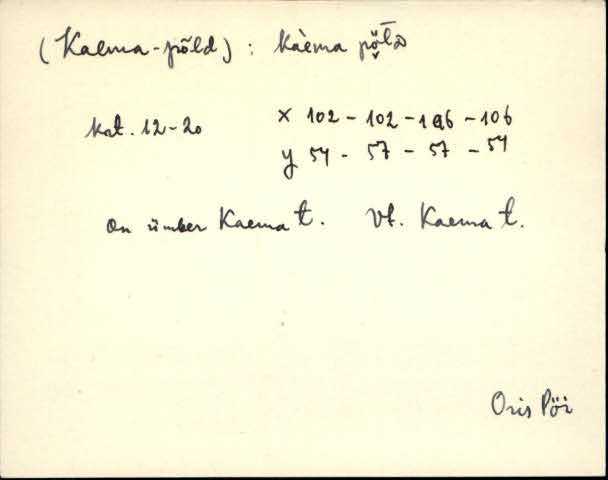 (Kaema-põld) : kàema
kat. 12-20 x 102 - 102 - 106 - 106
y 54 - 57 - 57 - 54
On ümber Kaema t. Vt. Kaema t.
Oris Pöi